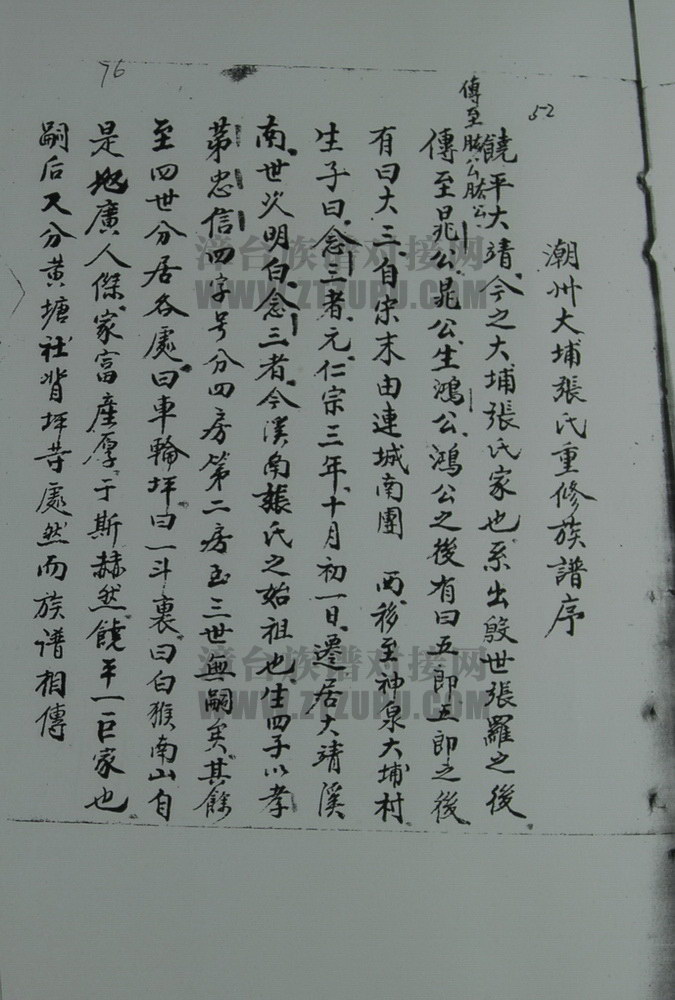 52
潮州大埔張氏重修族譜序
饒平大靖今之大埔張氏家也系出殷世張羅之後
傳至肱公肱公
傳至晁公晁公生鴻公鴻公之後有曰五郎五郎之後
有曰大三自宋末由連城南團 西移至神泉大埔村
生子曰念三者元仁宗三年十月初一日遷居大靖溪
南世次明白念三者今溪南張氏之始祖也生四子以孝
苐忠信四字号分四房第二房玉三世無嗣矣其餘
至四世分居各處曰車輪坪曰一斗裏曰白猴南山自
是地廣人傑家富產厚于斯赫然饒平一巨家也
嗣后又分黄塘社背坪䓁處然而族谱相傳
76
漳台族谱对接网
WWW.ZTZUPU.COM
漳台族谱对接网
WWW.ZTZUPU.COM